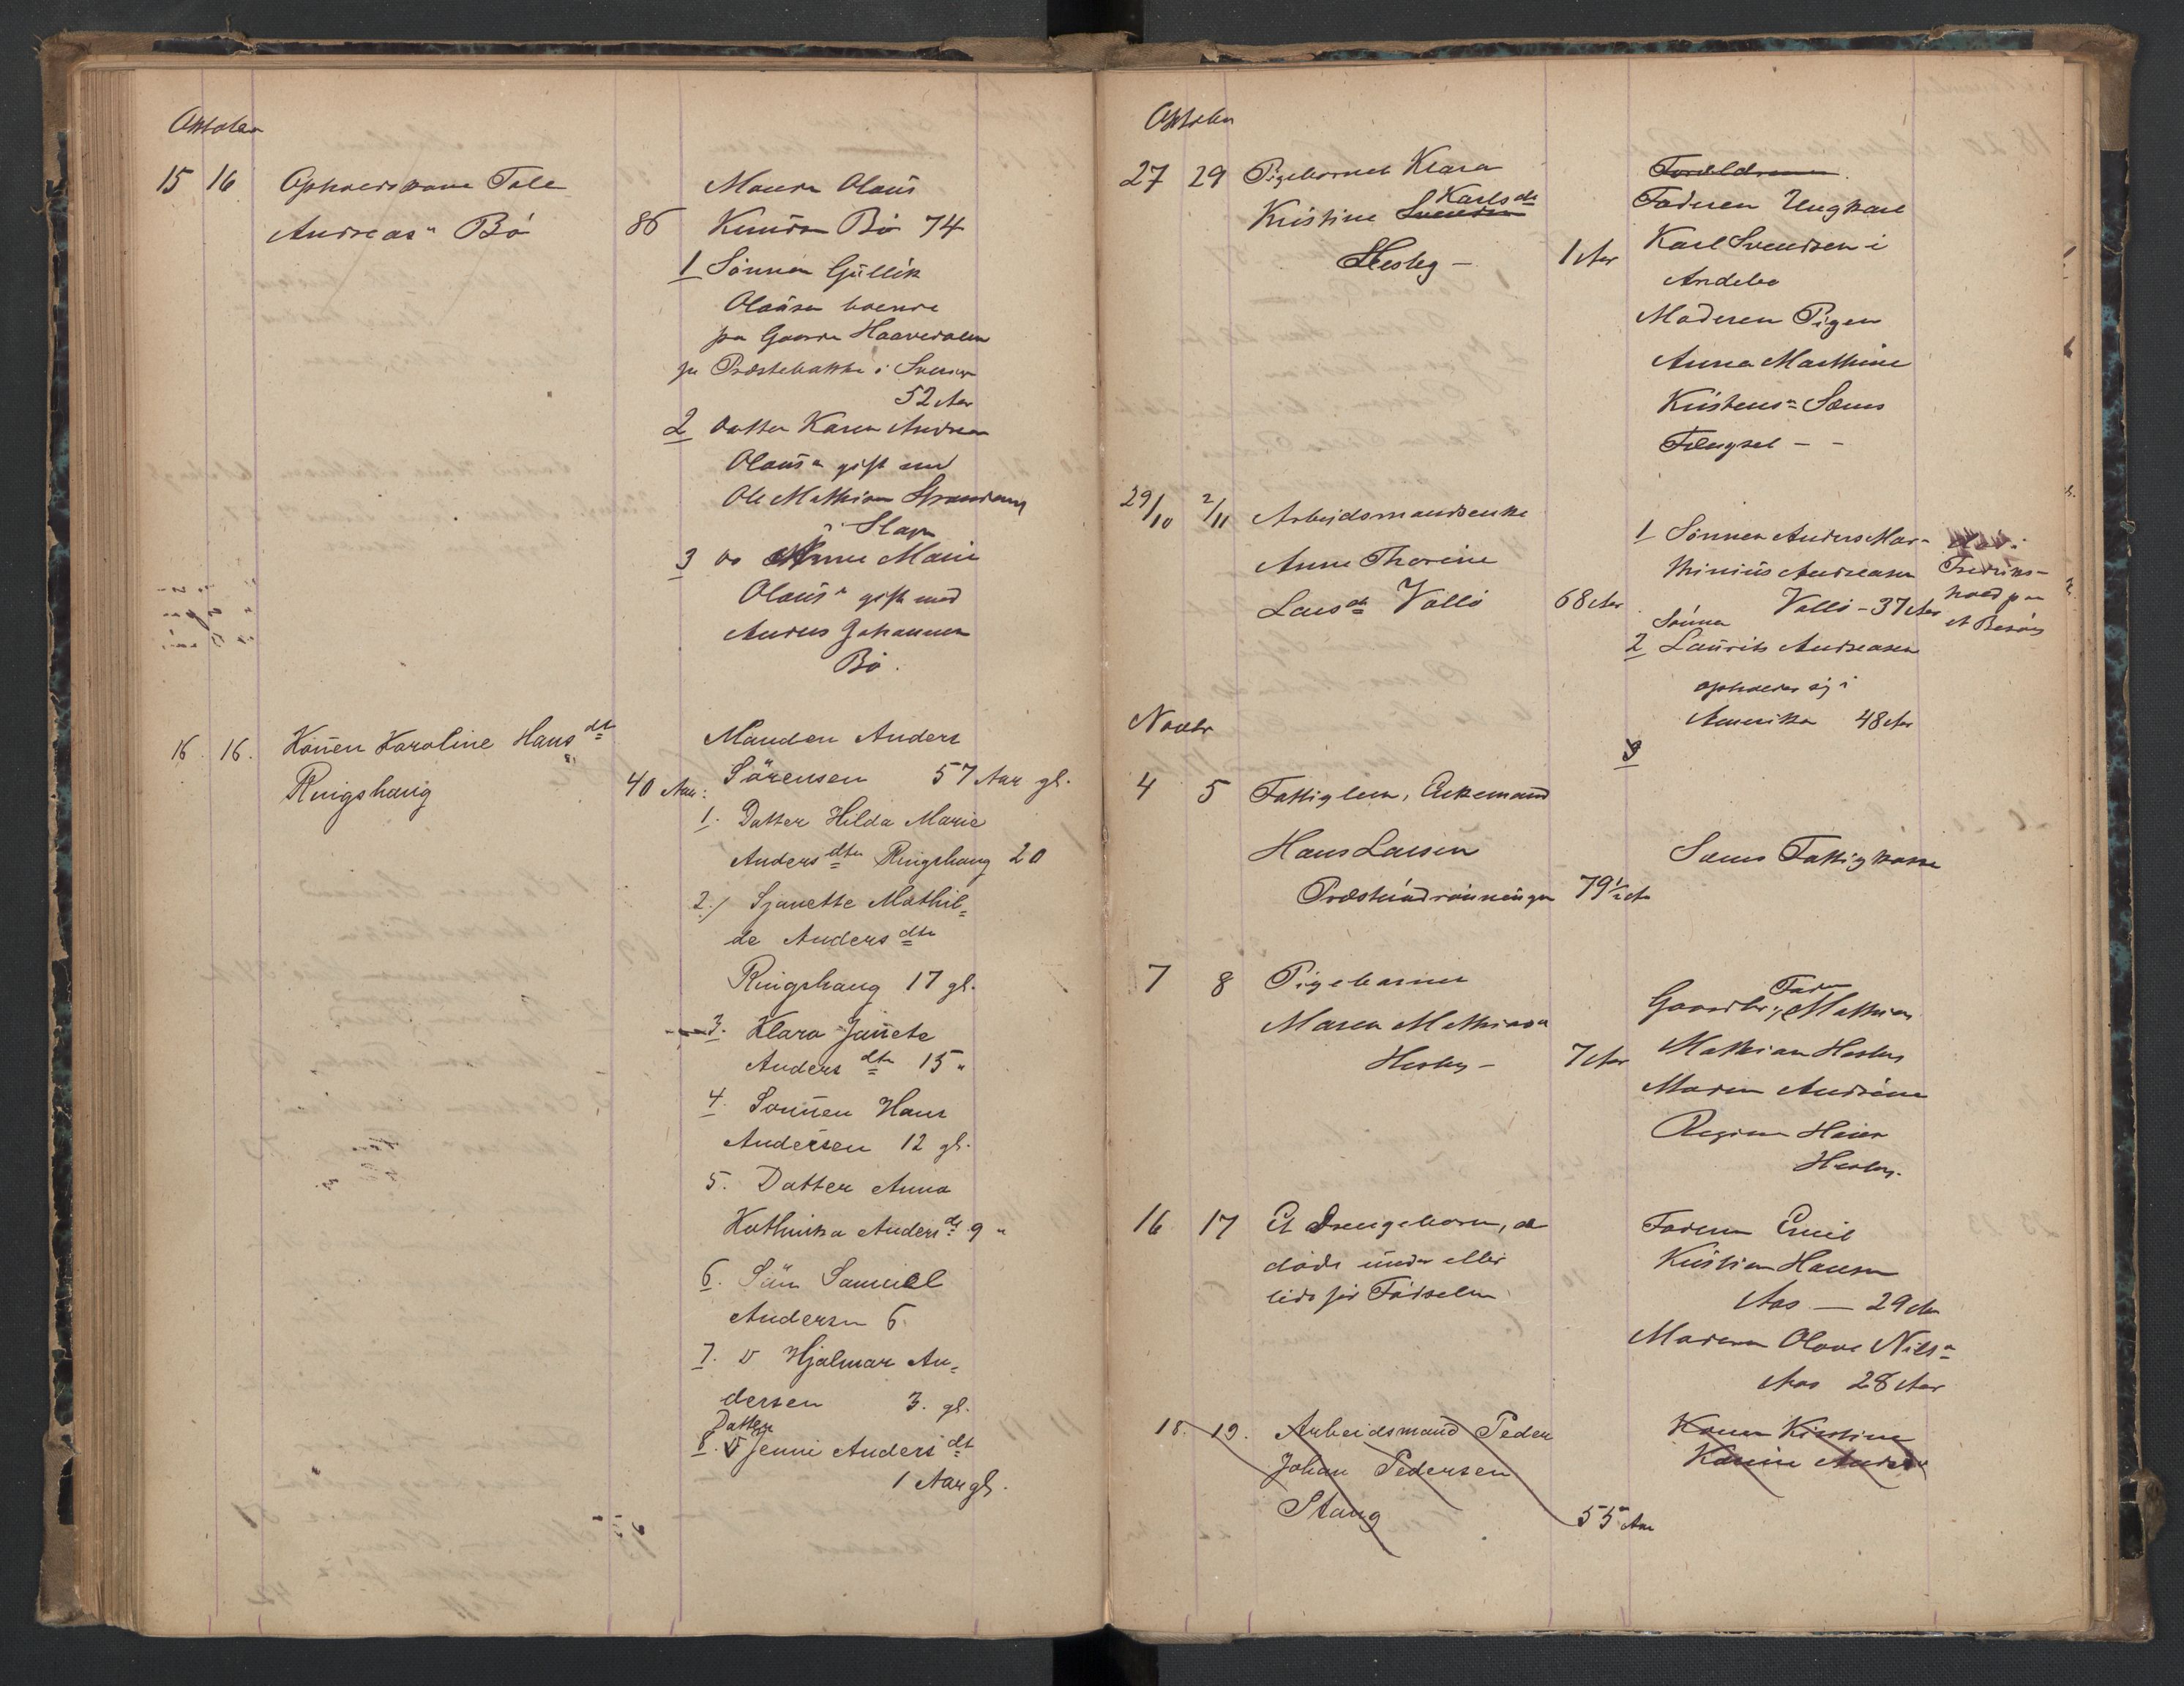 Oktober
15 16 Opholdskone Tale
Andreasn Bö 86
Manden Olaus
Knudsen Bö 74
1 Sönnen Gullik
Olausen boende
paa Gaarden Haaverdalen
52 Aar
2 Datter Karen Andrea
Olausn gift med
Ole Mathisen
i Slagn
3 do Anne Marie
Olausn gift med
Anders Johannesen
Bö.
16. 16. Konen Karoline Hansdtr
Ringshaug 40 Aar.
Manden Anders
Sörensen 57 Aar gl.
1. Datter Hilda Marie
Andersdtr Ringshaug 20
2./ Sjanette Mathil=
de Andersdtr
Ringshaug 17 gl.
3. Klara Janete
Anders dtr 15 "
4. Sönnen Hans
Andersen 12 gl.
5. Datter Anna
Kathinka Andersdt 9 "
6. Sön Samuel
Andersen 6.
7. D Hjalmar An=
dersen 3. gl.
Datter
8. Jenni Andersdt
1 Aar gl.
Oktober
27 29 Pigebarnet Klara
Karlsdt
Kristine Svendsen
Hesby – 1 Aar
Forældrene
Faderen Ungkarl
Karl Svendsen i
Andebo
Moderen Pigen
Anna Mathine
Kristensn Sems
Fængsel – –
29/10 2/11 Arbeidsmandsenke
Anne Thorine
Larsdt Vallö 68 Aar
1 Sönnen Anders Mar-
thinius Andreasen
Vallö – 37 Aar
Fredriks-
hald paa
et Besög
Sönnen
2 Laurits Andreasen
opholder sig i
Amerika 48 Aar
3
Novbr
4 5 Fattiglem, Enkemand
Hans Larsen
Præstindrönningen 79 1/2 Aar
Sems Fattigkasse
7 8 Pigebarnet
Maren Mathisen
Hesby – 7 Aar
Fader
Gaardbr. Mathias
Mathisen Hesby
Moren Andrine
Regine Hesby.
16 17 Et Drengebarn, der
döde under eller
lidt för Födselen
Faderen Emil
Kristian Hansen
Aas — 29 Aar
Moderen Olave Nilsn
Aas 28 Aar
18. 19. Arbeidsmand Peder
Johan Pedersen
Stang 55 Aar
Konen Kirstine
Karine Andersn